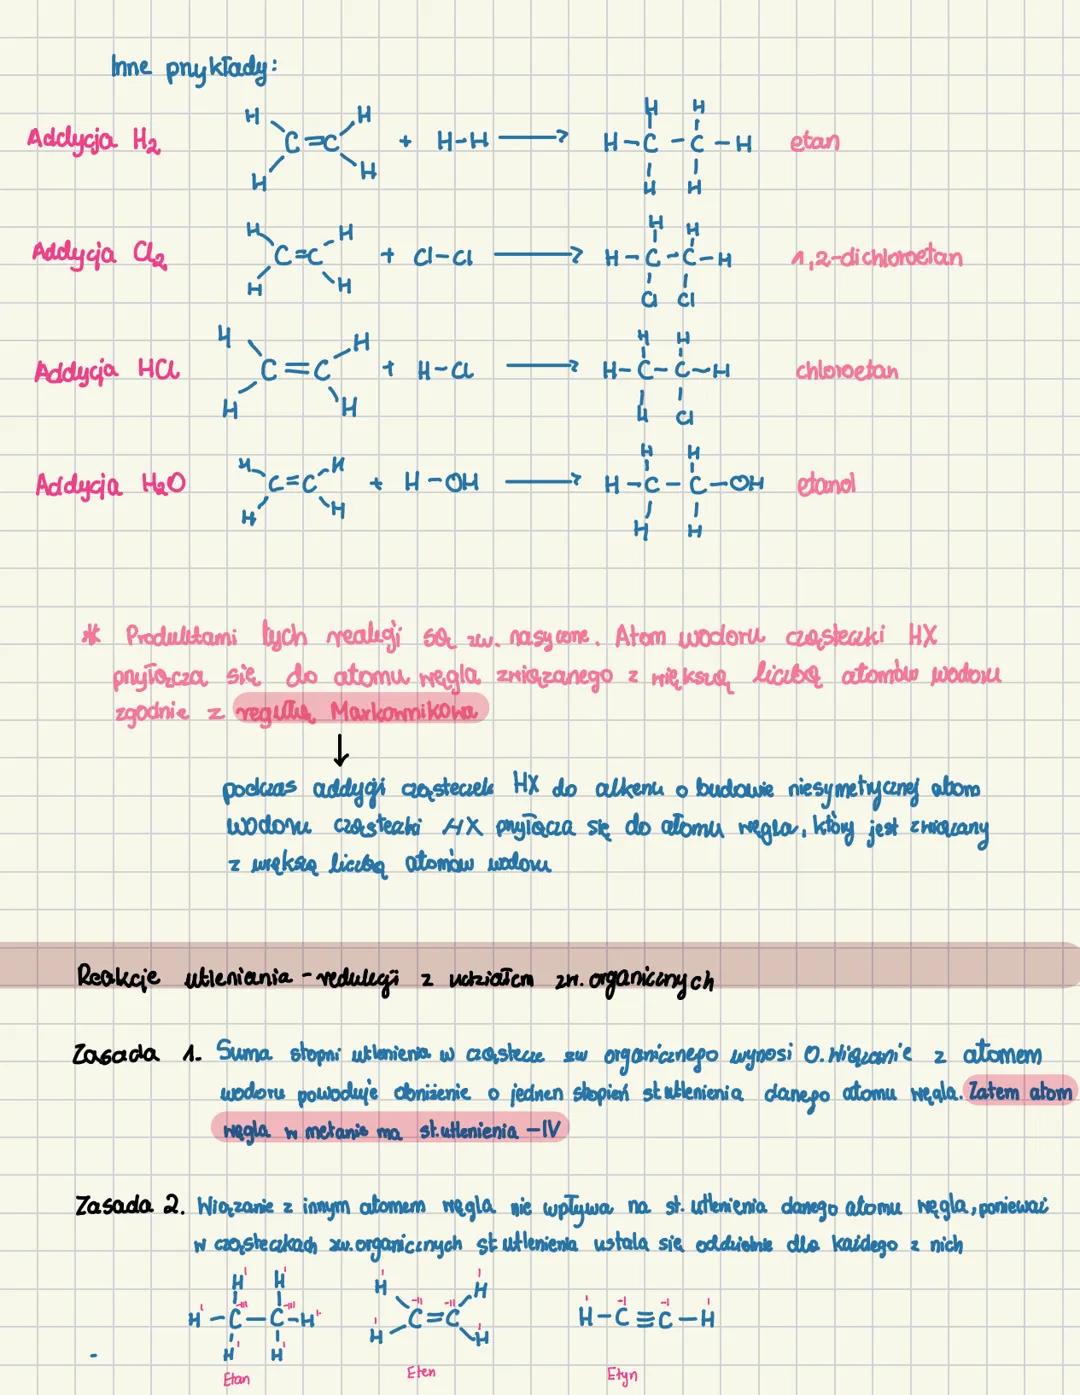 Inne przykłady:
Addycja H₂ H H H H C=C + H-H → H H H-C-C-H H H etan
Addycja Cl₂ H H H H C=C + Cl-Cl → H H H-C-C-H Cl Cl 1,2-dichloroetan
Addycja HCl H H H H C=C + H-Cl → H H H-C-C-H H Cl chloroetan
Addycja H₂O H H H H C=C + H-OH → H H H-C-C-OH H H etanol
* Produktami tych reakcji są zw. nasycone. Atom wodoru cząsteczki HX
przyłącza się do atomu węgla związanego z większą liczbą atomów wodoru
zgodnie z regułą Markownikowa
↓
podczas addycji cząsteczek HX do alkenu o budowie niesymetrycznej atom
wodoru cząsteczki HX przyłącza się do atomu węgla, który jest związany
z większą liczbą atomów wodoru
Reakcje utleniania - redukcji z udziałem zw. organicznych
Zasada 1. Suma stopni utlenienia w cząstecze zw organicznego wynosi 0. Wiązanie z atomem
wodoru powoduje obniżenie o jednen stopień st utlenienia danego atomu węgla. Zatem atom
węgla w metanie ma st. utlenienia -IV
Zasada 2. Wiązanie z innym atomem węgla nie wpływa na st. utlenienia danego atomu węgla, ponieważ
w cząsteczkach zw. organicznych st utlenienia ustala się oddzielnie dla każdego z nich
H H H-C-C-H H H H H C=C H H H-C≡C-H
Etan Eten Etyn